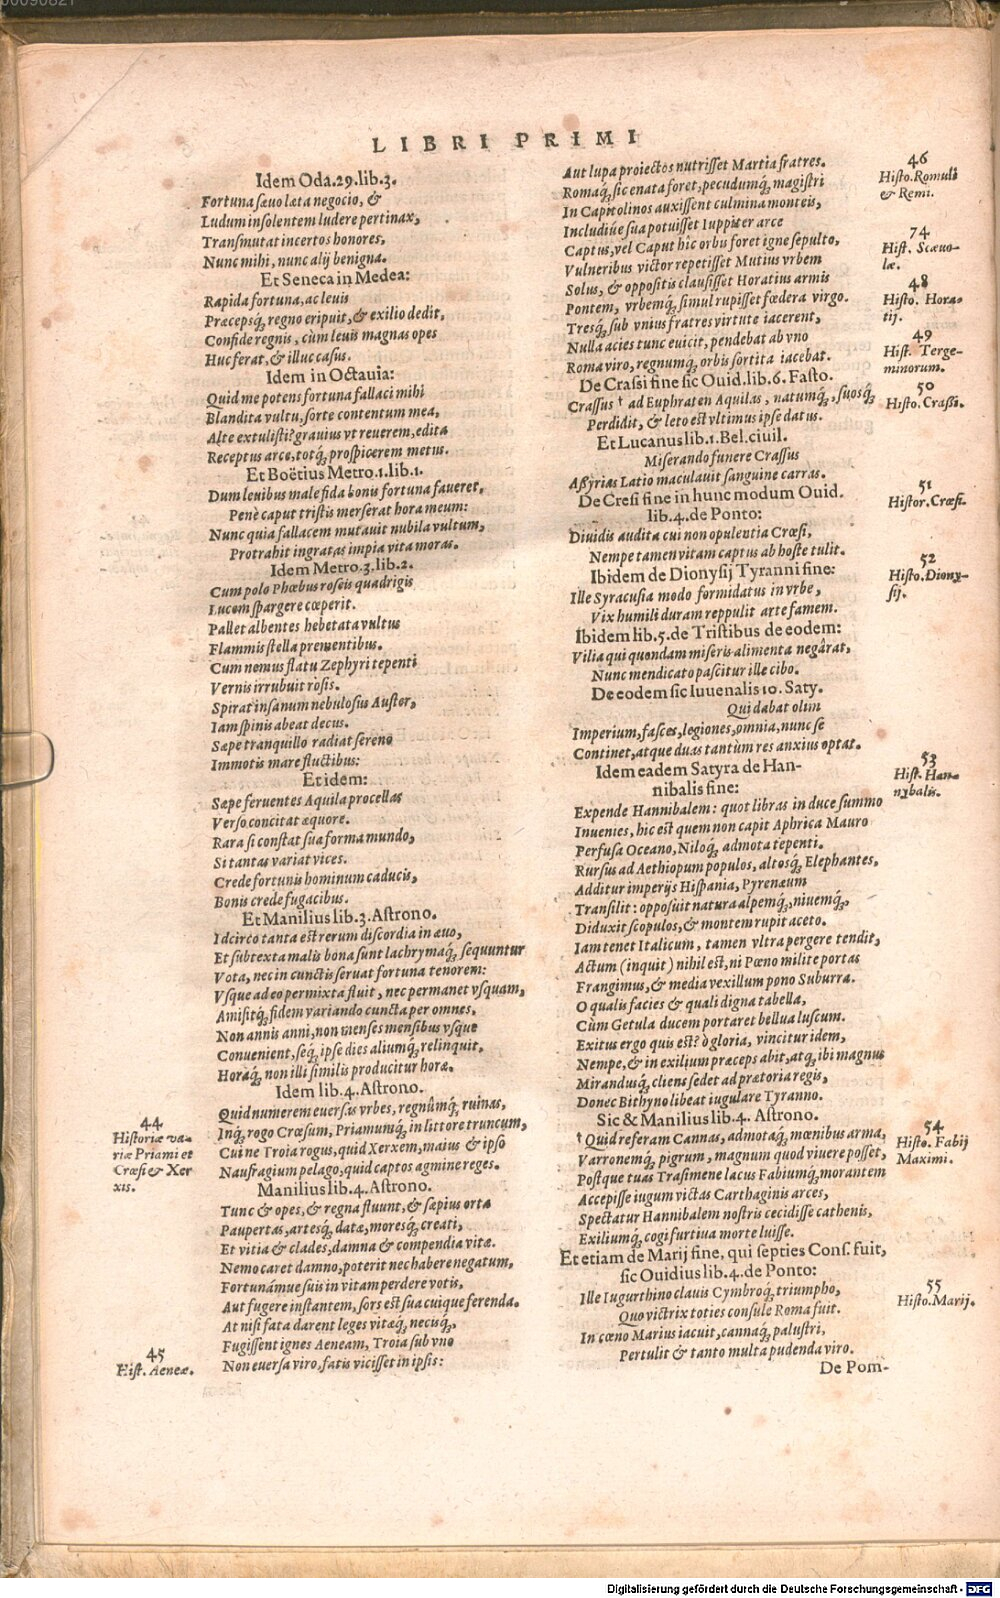 00090827
LIBRI PRIMI
Idem Oda.29.lib.3.
Fortuna sæuo læta negocio, &
Ludum insolentem ludere pertinax,
Transmutat incertos honores,
Nunc mihi, nunc alij benigna.
Et Seneca in Medea:
Rapida fortuna, ac leuis
Præcepsq́; regno eripuit, & exilio dedit,
Confide regnis, cùm leuis magnas opes
Huc ferat, & illuc casus.
Idem in Octauia:
Quid me potens fortuna fallaci mihi
Blandita vultu, sorte contentum mea,
Alte extulisti? grauius vt reuerem, edita
Receptus arce, totq́; prospicerem metus.
Et Boëtius Metro.1.lib.1.
Dum leuibus male fida bonis fortuna faueret,
Penè caput tristis merserat hora meum:
Nunc quia fallacem mutauit nubila vultum,
Protrahit ingratas impia vita moras.
Idem Metro.3.lib.2.
Cum polo Phœbus roseis quadrigis
Lucem spargere cœperit.
Pallet albentes hebetata vultus
Flammis stella prementibus.
Cum nemus flatu Zephyri tepenti
Vernis irrubuit rosis.
Spirat insanum nebulosus Auster,
Iam spinis abeat decus.
Sæpe tranquillo radiat sereno
Immotis mare fluctibus:
Et idem:
Sæpe feruentes Aquila procellas
Verso concitat æquore.
Rara si constat sua forma mundo,
Si tantas variat vices.
Crede fortunis hominum caducis,
Bonis crede fugacibus.
Et Manilius lib.3. Astrono.
Idcirco tanta est rerum discordia in æuo,
Et subtexta malis bona sunt lachrymaq́; sequuntur
Vota, nec in cunctis seruat fortuna tenorem:
Vsque adeo permixta fluit, nec permanet vsquam,
Amisitq́; fidem variando cuncta per omnes.
Non annis anni, non menses mensibus vsque
Conuenient, seq́; ipse dies aliumq́; relinquit,
Horaq́; non illi similis producitur horæ.
Idem lib.4. Astrono.
Quid numerem euersas vrbes, regnûmq́; ruinas,
Inq́; rogo Crœsum, Priamumq́; in littore truncum,
Cui ne Troia rogus, quid Xerxem, maius & ipso
Naufragium pelago, quid captos agmine reges.
Manilius lib.4. Astrono.
Tunc & opes, & regna fluunt, & sæpius orta
Paupertas, artesq́; datæ, moresq́; creati,
Et vitia & clades, damna & compendia vitæ.
Nemo caret damno, poterit nec habere negatum,
Fortunámue suis in vitam perdere votis,
Aut fugere instantem, sors est sua cuique ferenda.
At nisi fata darent leges vitæq́; necisq́;,
Fugissent ignes Aeneam, Troia sub vno
Non euersa viro, fatis vicisset in ipsis:
44
Historiæ va-
riæ Priami et
Crœsi & Xer
xis.
45
Hist. Aeneæ.
Aut lupa proiectos nutrisset Martia fratres.
Romaq́; sic enata foret, pecudumq́; magistri
In Capitolinos auxissent culmina monteis,
Includiúe sua potuisset Iuppiter arce
Captus, vel Caput hic orbis foret igne sepulto,
Vulneribus victor repetisset Mutius vrbem
Solus, & oppositis clausisset Horatius armis
Pontem, vrbemq́; simul rupisset fœdera virgo.
Tresq́; sub vnius fratres virtute iacerent,
Nulla acies tunc euicit, pendebat ab vno
Roma viro, regnumq́; orbis sortita iacebat.
De Crassi fine sic Ouid.lib.6. Fasto.
Crassus † ad Euphraten Aquilas, natumq́;, suosq́;
Perdidit, & leto est vltimus ipse datus.
Et Lucanus lib.1. Bel.ciuil.
Miserando funere Crassus
Aßyrias Latio maculauit sanguine carras.
De Cresi fine in hunc modum Ouid.
lib.4. de Ponto:
Diuidis audita cui non opulentia Crœsi,
Nempe tamen vitam captus ab hoste tulit.
Ibidem de Dionysij Tyranni fine:
Ille Syracusia modo formidatus in vrbe,
Vix humili duram reppulit arte famem.
Ibidem lib.5. de Tristibus de eodem:
Vilia qui quondam miseris alimenta negârat,
Nunc mendicato pascitur ille cibo.
De eodem sic Iuuenalis 10. Saty.
Qui dabat olim
Imperium, fasces, legiones, omnia, nunc se
Continet, atque duas tantùm res anxius optat.
Idem eadem Satyra de Han-
nibalis fine:
Expende Hannibalem: quot libras in duce summo
Inuenies, hic est quem non capit Aphrica Mauro
Perfusa Oceano, Niloq́; admota tepenti.
Rursus ad Aethiopum populos, altosq́; Elephantes,
Additur imperijs Hispania, Pyrenæum
Transilit: opposuit natura alpemq́;, niuemq́;,
Diduxit scopulos, & montem rupit aceto.
Iam tenet Italicum, tamen vltra pergere tendit,
Actum (inquit) nihil est, ni Pœno milite portas
Frangimus, & media vexillum pono Suburra.
O qualis facies & quali digna tabella,
Cùm Getula ducem portaret bellua luscum.
Exitus ergo quis est? ò gloria, vincitur idem,
Nempe, & in exilium præceps abit, atq́; ibi magnus
Mirandusq́; cliens sedet ad prætoria regis,
Donec Bithyno libeat iugulare Tyranno.
Sic & Manilius lib.4. Astrono.
† Quid referam Cannas, admotaq́; mœnibus arma,
Varronemq́; pigrum, magnum quod viuere posset,
Postque tuas Trasimene lacus Fabiumq́; morantem
Accepisse iugum victas Carthaginis arces,
Spectatur Hannibalem nostris cecidisse cathenis,
Exiliumq́; cogi furtiua morte luisse.
Et etiam de Marij fine, qui septies Cons. fuit,
sic Ouidius lib.4. de Ponto:
Ille Iugurthino clauis Cymbroq́; triumpho,
Quo victrix toties consule Roma fuit.
In cœno Marius iacuit, cannaq́; palustri,
Pertulit & tanto multa pudenda viro.
De Pom-
46
Histo. Romuli
& Remi.
74
Hist. Scæuo-
læ.
48
Histo. Hora-
tij.
49
Hist. Terge-
minorum.
50
Histo. Crassi.
51
Histor. Cræsi.
52
Histo. Diony-
sij.
53
Hist. Han-
nybalis.
54
Histo. Fabij
Maximi.
55
Histo. Marij.
Digitalisierung gefördert durch die Deutsche Forschungsgemeinschaft - DFG